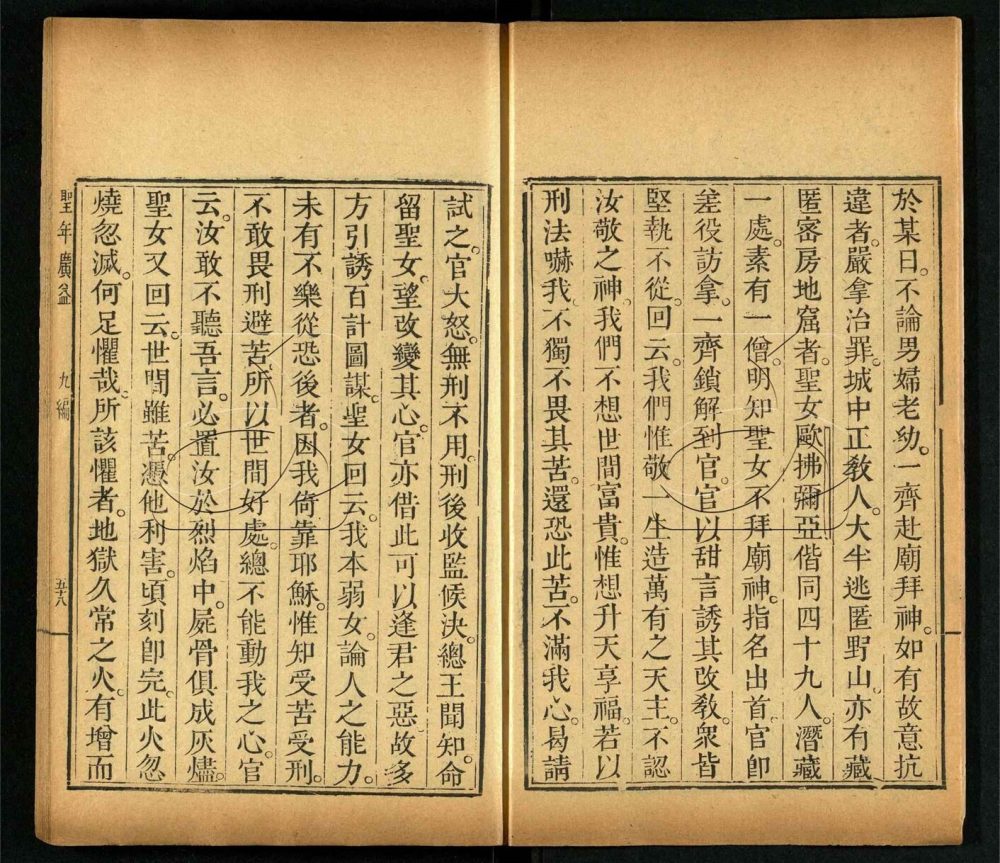 於某日。不論男婦老幼。一齊赴廟拜神。如有故意抗
違者。嚴拿治罪。城中正教人。大半逃匿野山。亦有藏
匿密房地窟者。聖女歐拂彌亞。偕同四十九人。潛藏
一處。素有一僧。明知聖女不拜廟神。指名出首。官卽
差役訪拿。一齊鎖解到官。官以甜言誘其改教。衆皆
堅執不從。回云。我們惟敬一生造萬有之天主。不認
汝敬之神。我們不想世間富貴。惟想升天享福。若以
刑法嚇我。不獨不畏其苦。還恐此苦。不滿我心。曷請
試之。官大怒。無刑不用。刑後收監候決。總王聞知。命
留聖女。望改變其心。官亦借此可以逢君之惡。故多
方引誘。百計圖謀。聖女回云。我本弱女。論人之能力。
未有不樂從恐後者。因我倚靠耶穌。惟知受苦受刑。
不敢畏刑避苦。所以世間好處。總不能動我之心。官
云。汝敢不聽吾言。必置汝於烈焰中。屍骨俱成灰燼。
聖女又回云。世間雖苦。憑他利害。頃刻卽完。此火忽
燒忽滅。何足懼哉。所該懼者。地獄久常之火。有增而
聖年廣益 九編 五十八